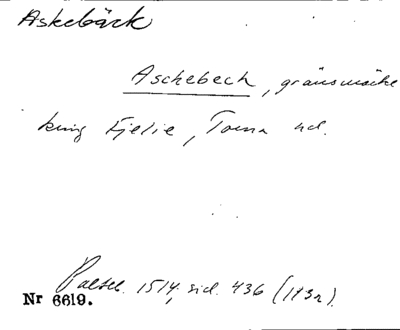 Askebäck
Aschebech, gränsmärke
kring Fjelie, Torna hd.
Palteb. 1514, sid. 436 (113r).
Nr 6619.